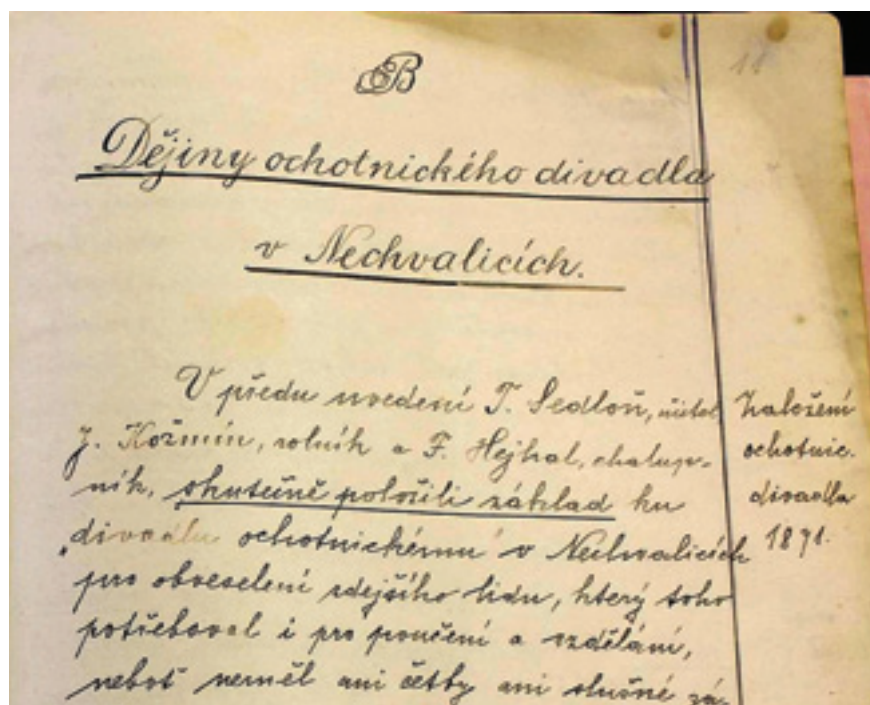 B
11
Dějiny ochotnického divadla
v Nechvalicích.
V předu uvedení T. Sedloň, učitel
J. Kožmín, rolník a F. Hejhal, chalup-
ník, skutečně položili základ ku
„divadlu ochotnickému" v Nechvalicích
pro obveselení zdejšího lidu, který toho
potřeboval i pro poučení a vzdělání,
neboť neměl ani četby ani slušné zá-
Založení
ochotnic.
divadla
1891.